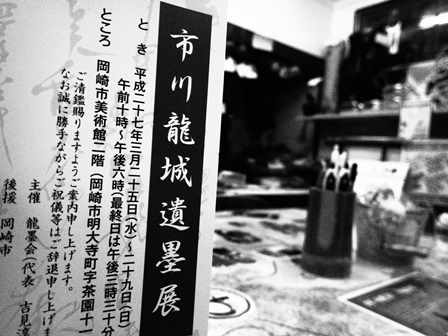 市川龍城遺墨展
とき 平成二十七年三月二十五日(水)～二十九日(日)
午前十時～午後六時(最終日は午後三時三十分
ところ 岡崎市美術館二階(岡崎市明大寺町字茶園十一
ご清鑑賜りますようご案内申し上げます。
なお誠に勝手ながらご祝儀等はご辞退申し上げ
主催 龍墨会(代表 吉見
後援 岡崎市